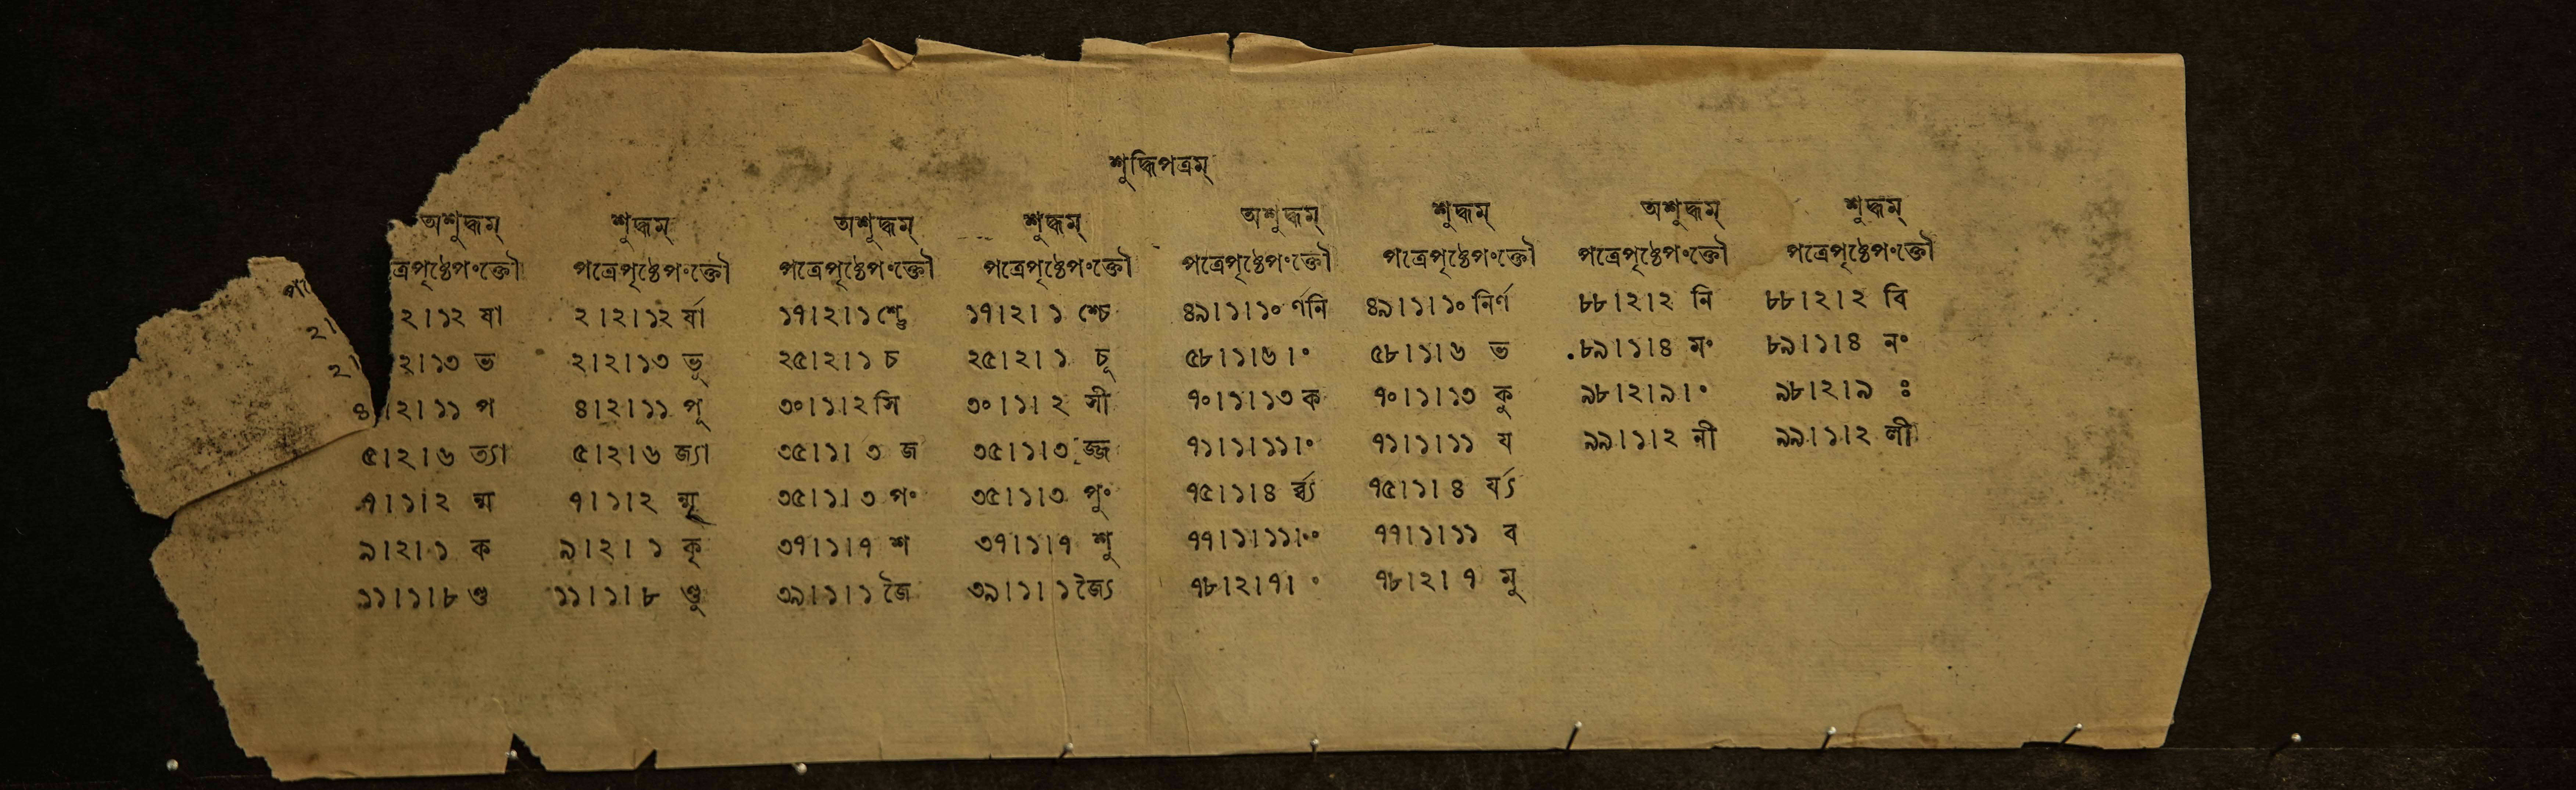 শুদ্ধিপত্রম্
অশুদ্ধম্ শুদ্ধম্ অশুদ্ধম্ শুদ্ধম্ অশুদ্ধম্ শুদ্ধম্ অশুদ্ধম্ শুদ্ধম্
ত্রেপৃষ্ঠেপংক্তৌ পত্রেপৃষ্ঠেপংক্তৌ পত্রেপৃষ্ঠেপংক্তৌ পত্রেপৃষ্ঠেপংক্তৌ পত্রেপৃষ্ঠেপংক্তৌ পত্রেপৃষ্ঠেপংক্তৌ পত্রেপৃষ্ঠেপংক্তৌ পত্রেপৃষ্ঠেপংক্তৌ
২।২।১২ ষা ২।২।১২ র্ষা ১৭।২।১ ১৭।২।১ শ্চে ৪৯।১।১০ র্ণনি ৪৯।১।১০ নির্ণ ৮৮।২।২ নি ৮৮।২।২ বি
২।২।১৩ ভ ২।২।১৩ ভূ ২৫।২।১ চ ২৫।২।১ চূ ৫৮।১।৬।০ ৫৮।১।৬ ভ ৮৯।১।৪ মং ৮৯।১।৪ নং
৪।২।১১ প ৪।২।১১ পূ ৩০।১।২ সি ৩০।১।২ সী ৭০।১।১৩ ক ৭০।১।১৩ কু ৯৮।২।৯।০ ৯৮।২।৯ ঃ
৫।২।৬ ত্যা ৫।২।৬ জ্যা ৩৫।১।৩ জ ৩৫।১।৩ জ্জ ৭১।১।১১।০ ৭১।১।১১ য ৯৯।১।২ নী ৯৯।১।২ লী
৭।১।২ ন্ম ৭।১।২ ন্মূ ৩৫।১।৩ পং ৩৫।১।৩ পুং ৭৫।১।৪ ৭৫।১।৪ র্য্য
৯।২।১ ক ৯।২।১ কৃ ৩৭।১।৭ শ ৩৭।১।৭ শু ৭৭।১।১১।০ ৭৭।১।১১ ব
১১।১।৮ ণ্ড ১১।১।৮ ণ্ডু ৩৯।১।১ জৈ ৩৯।১।১ জ্যৈ ৭৮।২।৭।০ ৭৮।২।৭ মু